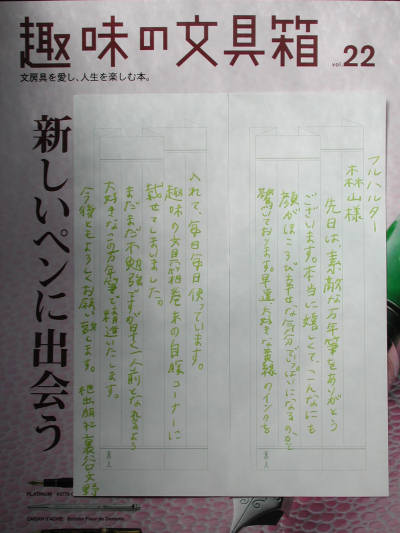 趣味の文具箱
vol. 22
文房具を愛し、人生を楽しむ本。
新しいペンに出会う
フルハルター
森山様
先日は、素敵な万年筆をありがとう
ございます。本当に嬉しくて、こんなにも
顔がほころび幸せな気分でいっぱいになるのかと
驚いております。早速、大好きな黄緑のインクを
入れて、毎日毎日使っています。
趣味の文具箱巻末の自慢コーナーに
載せてしまいました。
まだまだ不勉強ですが早く一人前となれるよう
大好きなこの万年筆で精進いたします。
今後ともよろしくお願い致します。
枻出版社 裏谷文野
PLATINUM
CARAN D'ACHE